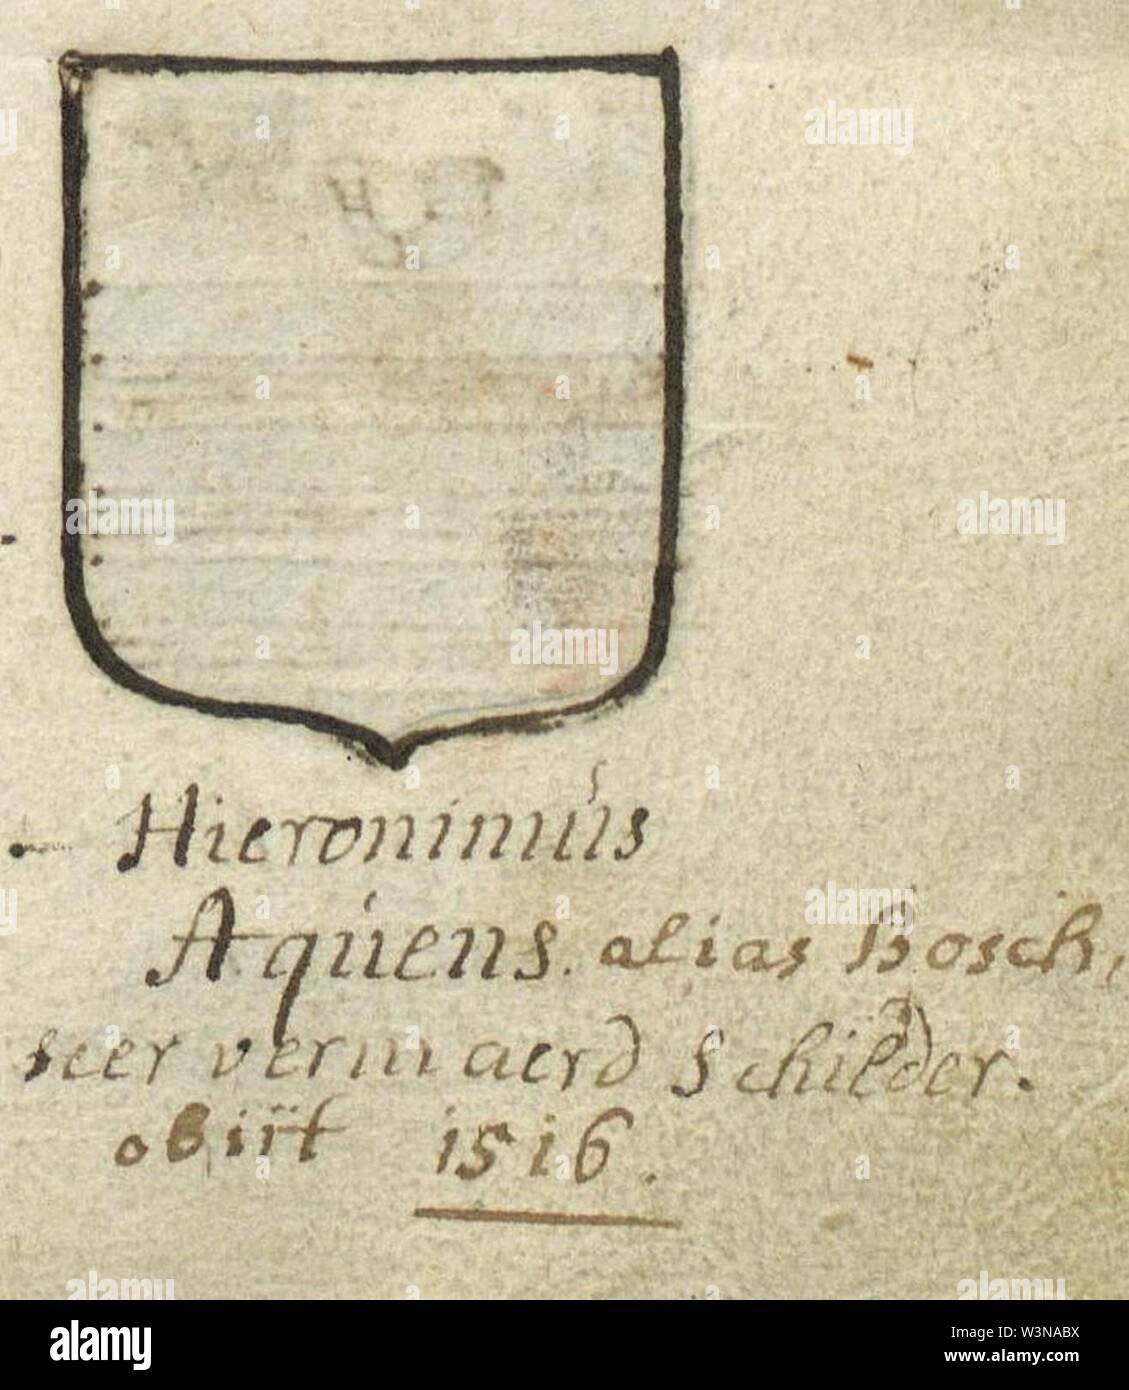 Hieronimús
Aqúens. alias Bosch,
seer vermaerd Schilder.
obiit 1516.
alamy
Image ID: W3NABX
www.alamy.com